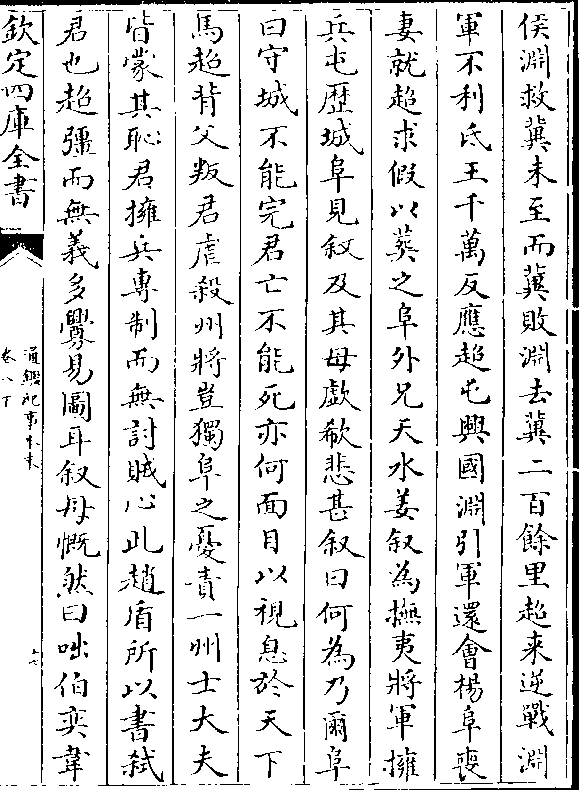 侯淵救冀未至而冀敗淵去冀二百餘里超来逆戰淵
軍不利氐王千萬反應超屯興國淵引軍還會楊阜喪
妻就超求假以葬之阜外兄天水姜叙為撫夷將軍擁
兵屯歴城阜見叙及其母歔欷悲甚叙曰何為乃爾阜
曰守城不能完君亡不能死亦何面目以視息於天下
馬超背父叛君虐殺州將豈獨阜之憂責一州士大夫
皆蒙其恥君擁兵專制而無討賊心此趙盾所以書弑
君也超彊而無義多釁易圖耳叙母慨然曰咄伯奕韋
欽定四庫全書
通鑑紀事本末
卷八下
六七